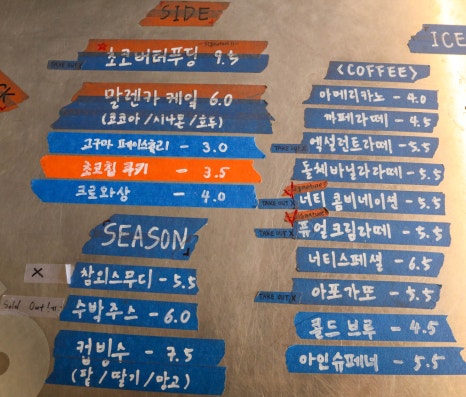 SIDE
Signature!!
초코버터푸딩 9.5
TAKE OUT X
말렌카 케잌 6.0
(코코아/시나몬/호두)
고구마 페이스츄리 - 3.0
초코칩 쿠키 - 3.5
크로와상 - 4.0
SEASON
X
참외스무디 - 5.5
Sold Out!
수박주스 - 6.0
컵빙수 - 7.5
(팥/딸기/망고)
ICE
<COFFEE>
아메리카노 - 4.0
까페라떼 - 4.5
TAKE OUT X
엑설런트라떼 - 5.5
돌체바닐라라떼 - 5.5
Signature!
TAKE OUT X
너티 콤비네이션 - 5.5
Signature!
TAKE OUT X
퓨얼크림라떼 - 5.5
너티스페셜 - 6.5
TAKE OUT X
아포가또 - 5.5
콜드 브루 - 4.5
아인슈페너 - 5.5